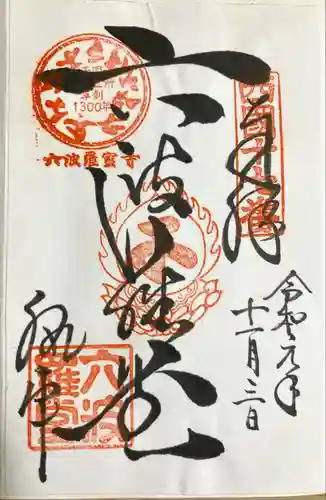 奉拝
西国十七番
令和元年
十一月三日
六波羅堂
草創
1300年
六波羅蜜寺
執事
六波
羅堂